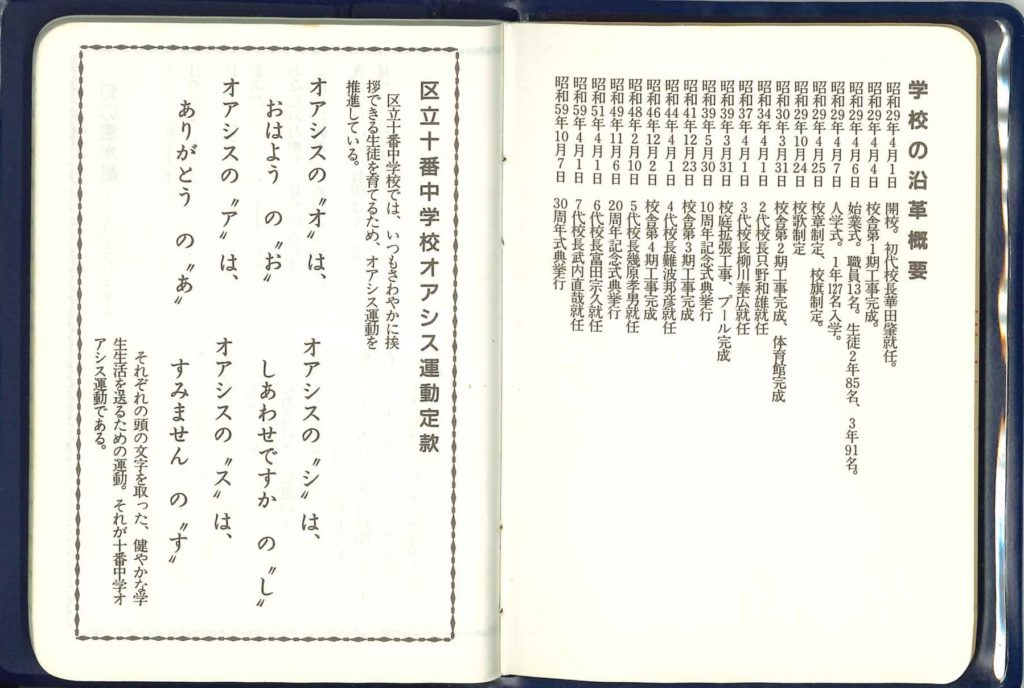 学校の沿革概要
昭和29年4月1日 開校。初代校長華田肇就任。
昭和29年4月4日 校舎第1期工事完成。
昭和29年4月6日 始業式。職員13名。生徒2年85名、3年91名。
昭和29年4月7日 入学式。1年127名入学。
昭和29年4月25日 校章制定、校旗制定。
昭和29年10月24日 校歌制定
昭和30年3月31日 校舎第2期工事完成、体育館完成
昭和34年4月1日 2代校長只野和雄就任
昭和37年4月1日 3代校長柳川泰広就任
昭和39年3月31日 校庭拡張工事、プール完成
昭和39年5月30日 10周年記念式典挙行
昭和41年12月23日 校舎第3期工事完成
昭和44年4月1日 4代校長難波邦彦就任
昭和46年12月2日 校舎第4期工事完成
昭和48年2月10日 5代校長幾原孝男就任
昭和49年11月6日 20周年記念式典挙行
昭和51年4月1日 6代校長富田宗久就任
昭和59年4月1日 7代校長武内直哉就任
昭和59年10月7日 30周年式典挙行
区立十番中学校オアシス運動定款
区立十番中学校では、いつもさわやかに挨
拶できる生徒を育てるため、オアシス運動を
推進している。
オアシスの〝オ〟は、
おはよう の〝お〟
オアシスの〝ア〟は、
ありがとう の〝あ〟
オアシスの〝シ〟は、
しあわせですか の〝し〟
オアシスの〝ス〟は、
すみません の〝す〟
それぞれの頭の文字を取った、健やかな学
生生活を送るための運動。それが十番中学オ
アシス運動である。